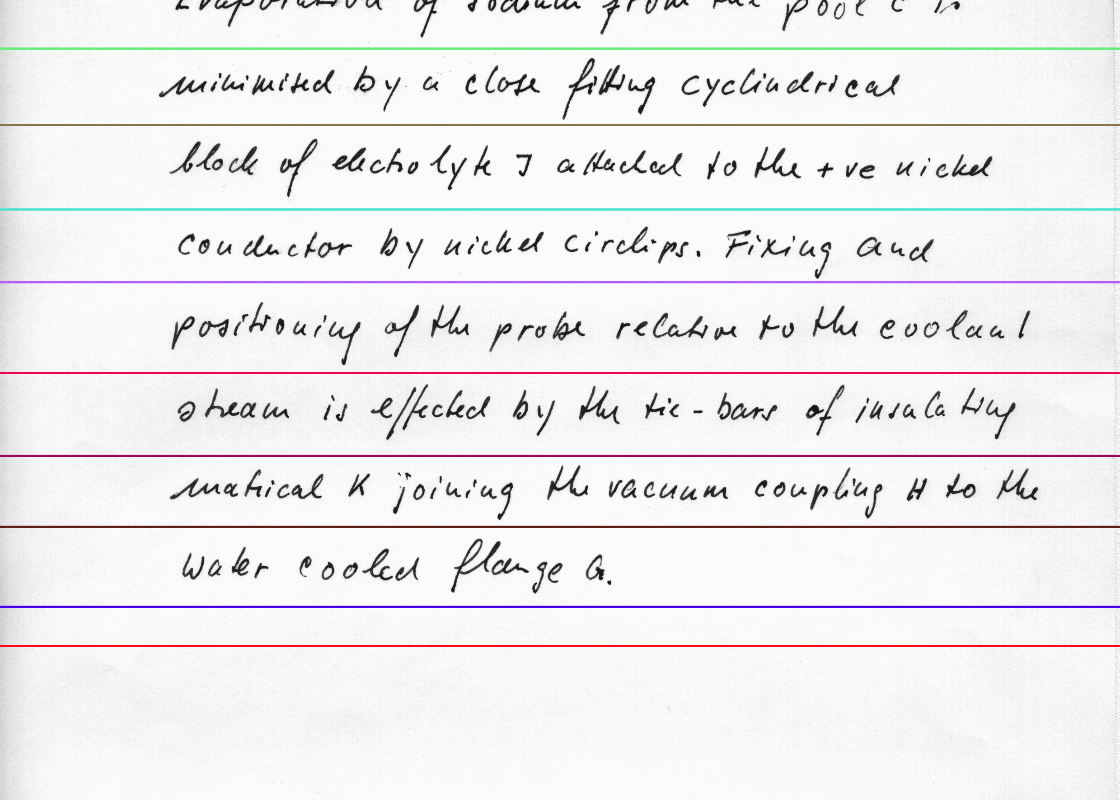 Evaporation of sodium from the pool C is
minimised by a close fitting cyclindrical
block of electrolyte J attached to the +ve nickel
conductor by nickel circlips. Fixing and
positioning of the probe relative to the coolant
stream is effected by the tie-bars of insulating
matrical K joining the vacuum coupling H to the
water cooled flange G.